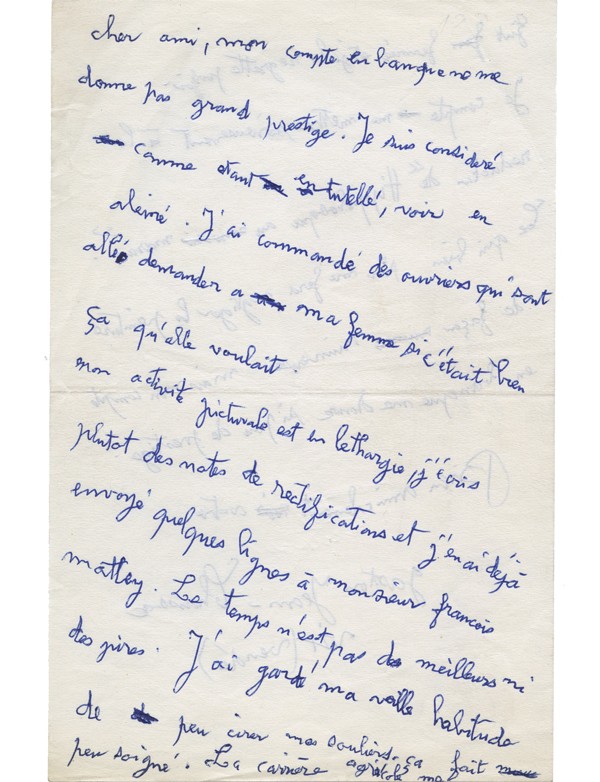 cher ami, mon compte en banque ne me
donne pas grand prestige. Je suis consideré
comme etant en tutellé, voir en
aleiné. J'ai commandé des ouvriers qui sont
allés demander a ma femme si c'était bien
ça qu'elle voulait.
mon activité picturale est en lethargie, j'écris
plutot des notes de rectifications et j'en ai dejà
envoyé quelques lignes à monsieur françois
mathey. Le temps n'est pas des meilleurs ni
des pires. J'ai gardé ma veille habitude
de peu cirer mes souliers. ça fait
peu soigné. La carrière agricole ma